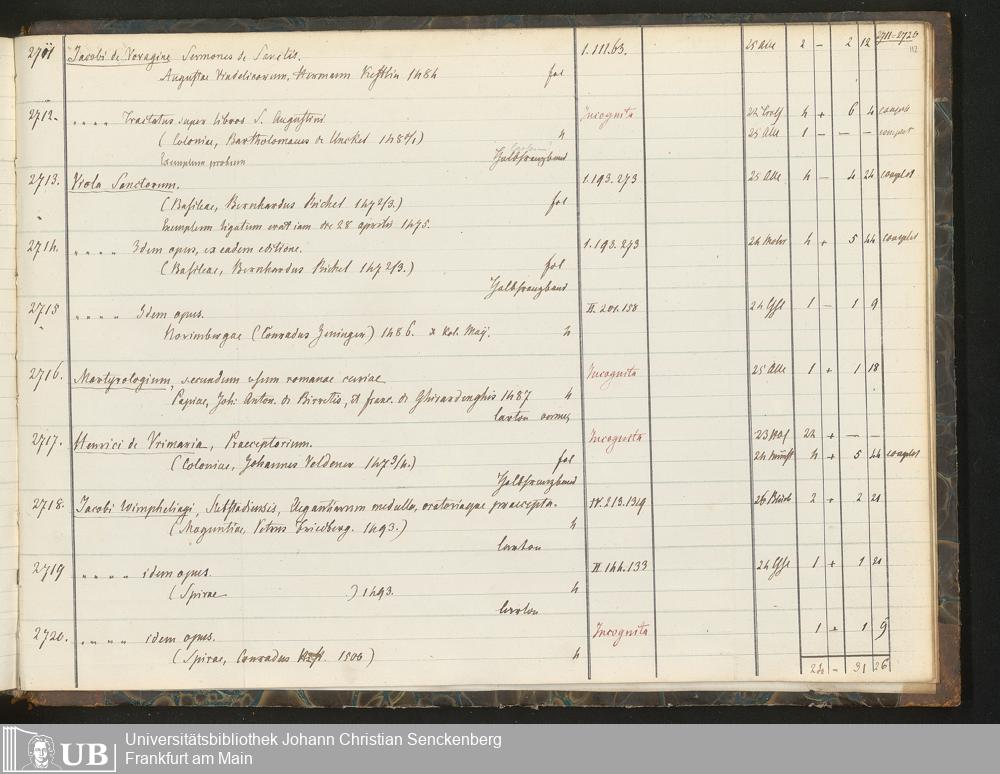 2711-2720
112
2711 Jacobi de Voragine Sermones de Sanctis. 1.111.63. 25 Alle 2 - 2 12
Augustae Vindelicorum, Hermann Kestlin 1484 fol
2712. " " " " Tractatus super libros S. Augustini Incognita 24 4 + 6 4 complet
(Coloniae, Bartholomaeus de Unckel 1482/1) 4 25 Alle 1 - - - complet
Exemplum probum Halbfranzband
2713. Viola Sanctorum. 1.193.273 25 Alle 4 - 4 24 complet
(Basileae, Bernhardus Richel 1472/3.) fol
Exemplum ligatum erat iam die 28 aprilis 1475.
2714. " " " " Idem opus, ex eadem editione. 1.193.273 24 4 + 5 44 complet
(Basileae, Bernhardus Richel 1472/3.) fol
Halbfranzband
2715 " " " " Idem opus. II.201.158 1 - 1 9
Norimbergae (Conradus Zeninger) 1486. Kal. Maij. 4
2716. Martyrologium, secundum usum romanae curiae Incognita 25 Alle 1 + 1 18
Papiae, Joh: Anton. de Birretis, et franc. de Ghirardenghis 1487 4
Carton
2717. Henrici de Vrimaria, Praeceptorium. Incognita 23 22 + - -
(Coloniae, Johannes Veldener 1473/4.) fol 24 4 + 5 44 complet
Halbfranzband
2718. Jacobi Wimphelingi, Sletstadiensis, Elegantiarum medulla, oratoriaque praecepta. IV.213.1319 26 2 + 2 21
(Moguntiae, Petrus Friedberg. 1493.) 4
Carton
2719 " " " " idem opus. II.144.133 1 + 1 21
(Spirae ) 1493. 4
Carton
2720. " " " " idem opus. Incognita 1 + 1 9
(Spirae, Conradus Hist. 1500) 4
- 31 26
UB
Universitätsbibliothek Johann Christian Senckenberg
Frankfurt am Main